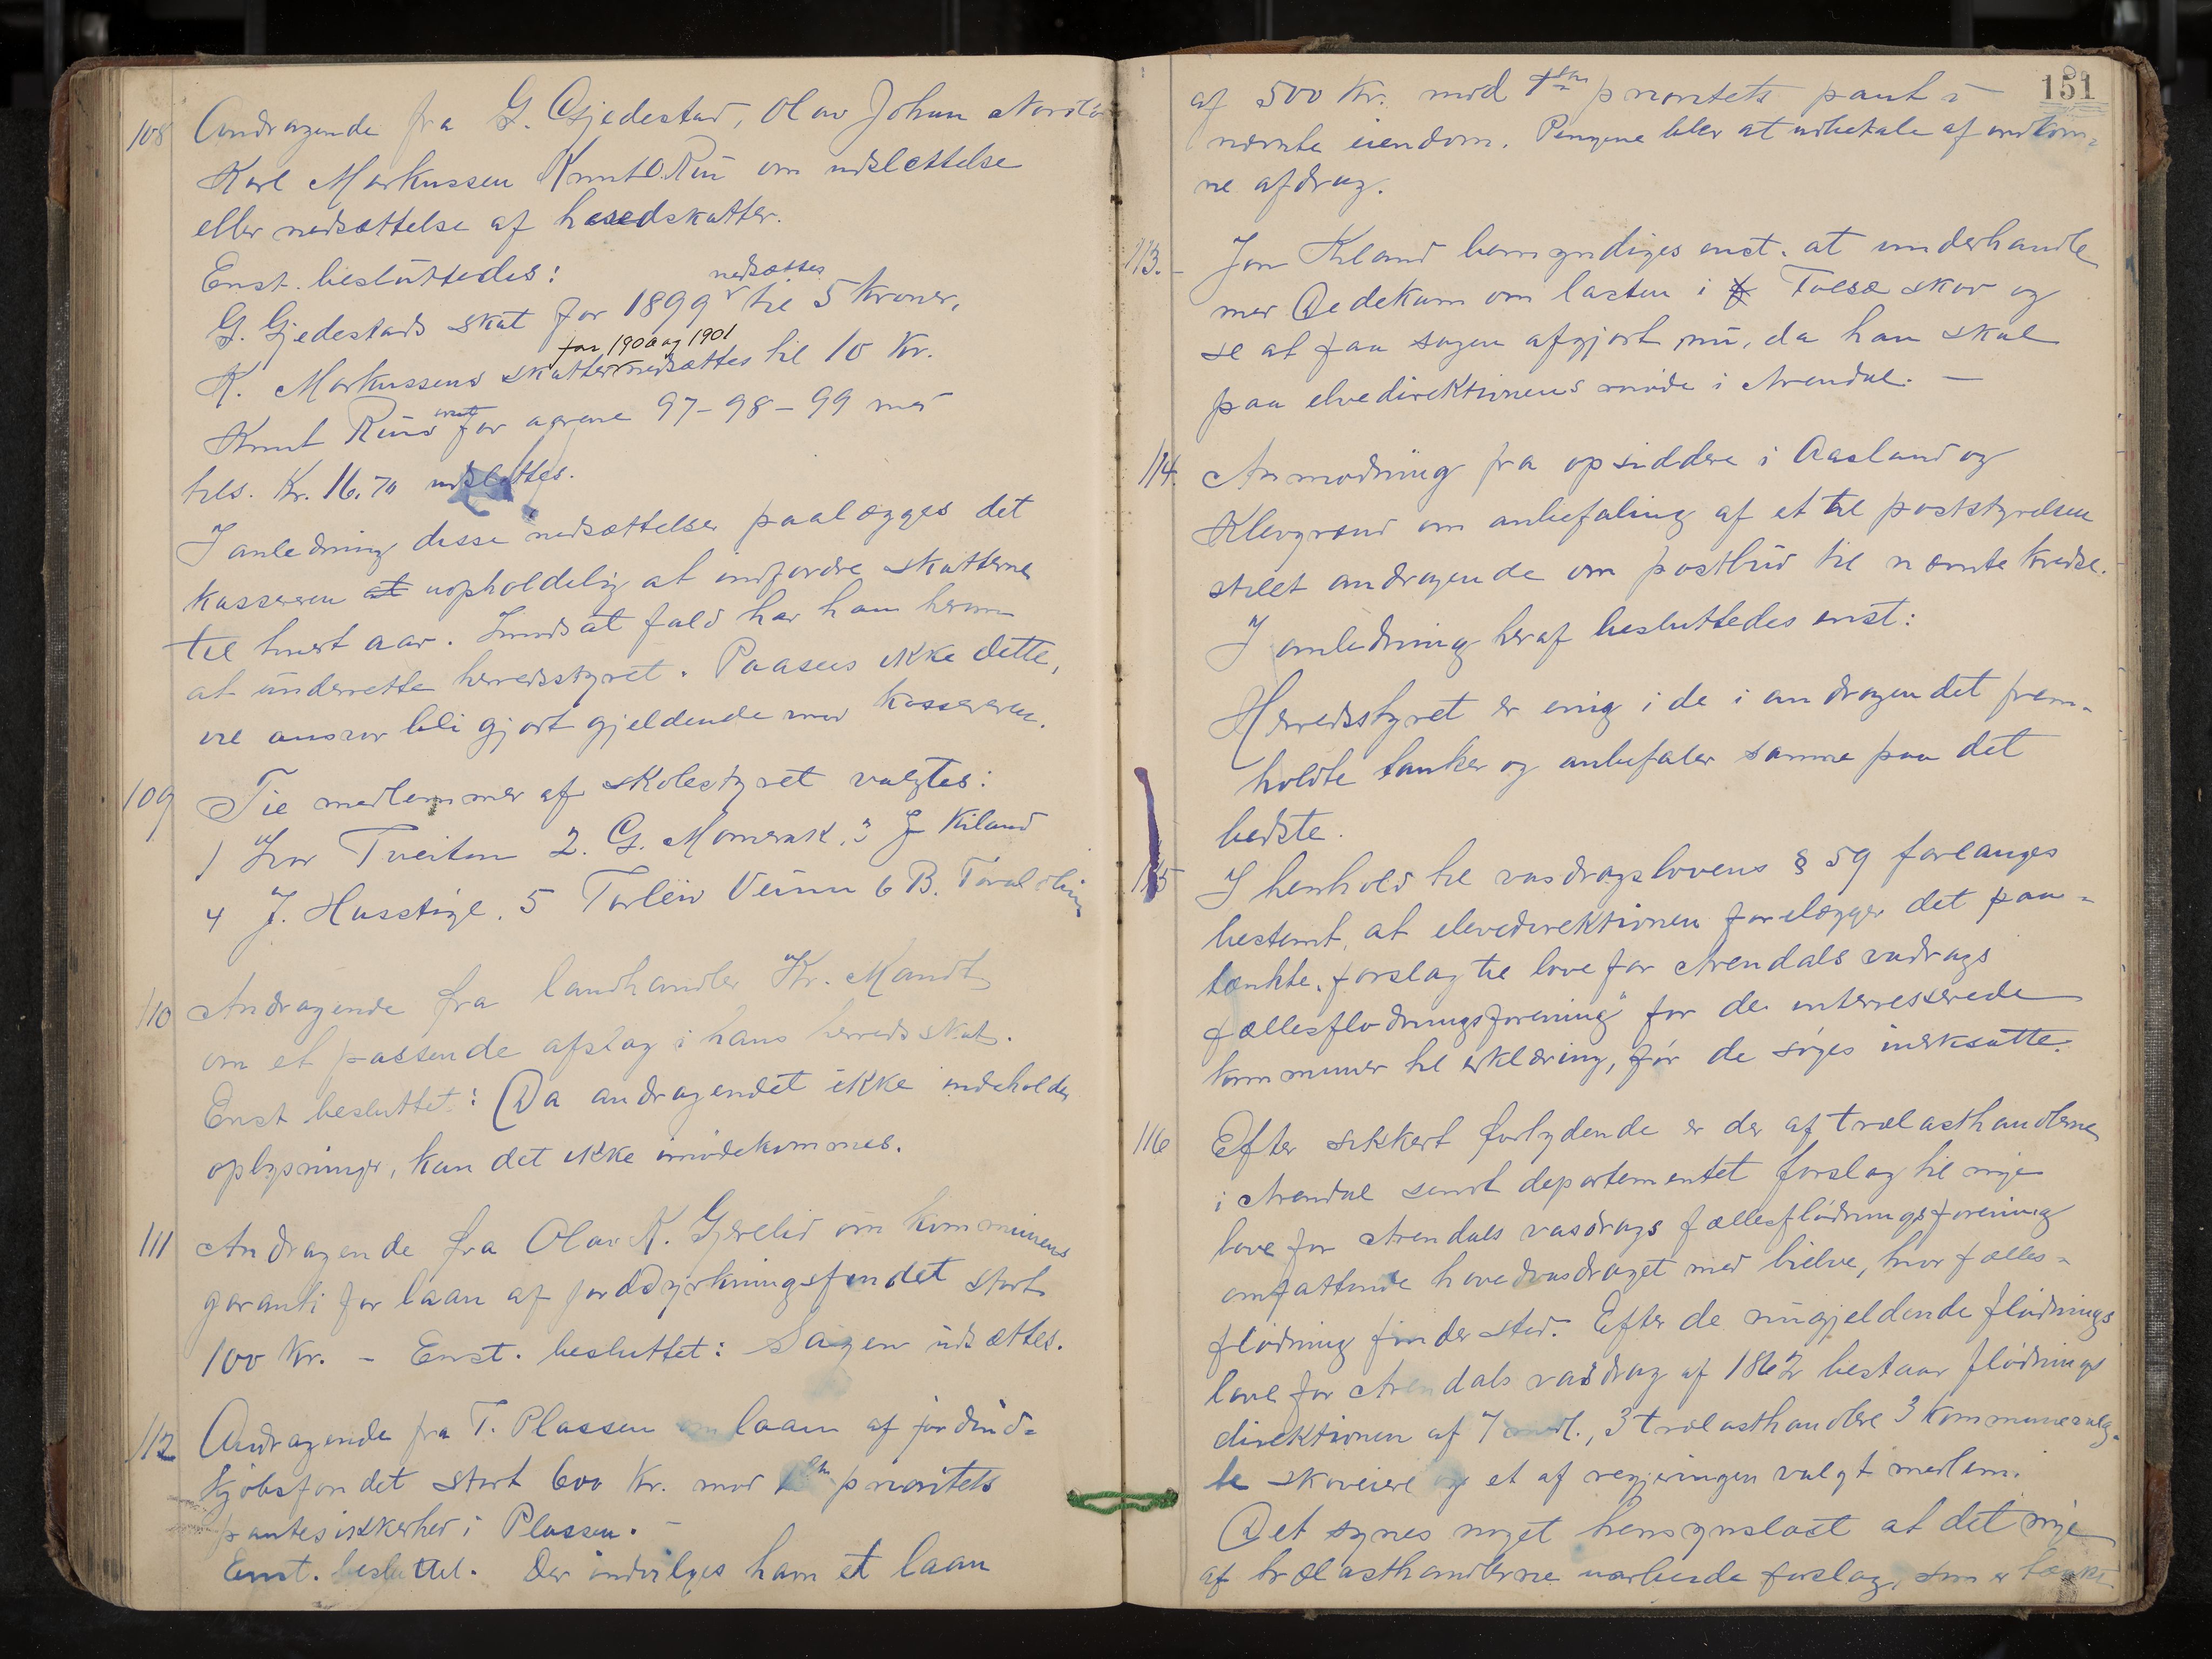 108 Andragende fra G. Gjedestad, Olav Johan
Karl Markussen Knut O. Rui om udslettelse
eller nedsættelse af heredskatter.
Enst. besluttedes:
G. Gjedestads skat for 1899 nedsættes til 5 kroner,
K. Markussens skatter for 1900 og 1901 nedsættes til 10 Kr.
Knut Ruis for aarene 97-98-99 med
tils. Kr. 16.70 udslettes.
I anledning disse nedsættelser paalægges det
kassereren at uopholdelig at indfordre skatterne
til hvert aar. I modsat fald har han herom
at underrette herredsstyret. Paasees ikke dette,
vil ansvar bli gjort gjeldende mod kassereren.
109 Til medlemmer af skolestyret valgtes:
1 Ivar Tveiten 2. G. Momrak, 3 J Kiland
4 J. Husstøyl. 5 Torleiv Veum 6 B.
110 Andragende fra landhandler Kr. Mandt
om et passende afslag i hans herredsskat.
Enst besluttet: Da andragendet ikke indeholder
oplysninger, kan det ikke imødekommes.
111 Andragende fra Olav K. Gjerelid om kommunens
garanti for laan af jorddyrkningsfondet stort
100 Kr. - Enst. besluttet: Sagen udsættes.
112 Andragende fra T. Plassen om laan af jordind=
kjøbsfondet stort 600 Kr. mod 1ste prioritets
pantesikkerhed i Plassen. -
Enst. besluttet. Der indvilges ham et laan
151
af 500 Kr. mod 1ste prioritets pant i
nævnte eiendom. Pengene blev at udbetale af indkom=
ne afdrag.
113. - Jon Kiland bemyndiges enst. at underhandle
med Dedekam om lasten i Tvese skov og
se at faa sagen afgjort nu, da han skal
paa elvedirektionens møde i Arendal. -
114. Anmodning fra opsiddere i Aasland og
Klevgrend om anbefaling af et til poststyrelsen
stilet andragende om postbud til nævnte kredse.
I anledning heraf besluttedes enst:
Herredsstyret er enig i de i andragendet frem=
holdte tanker og anbefaler samme paa det
bedste.
115 I henhold til vasdragslovens § 59 forlanges
bestemt, at elvedirektionen forelægger det paa=
tænkte "forslag til love for Arendals vadrags
fællesflødningsforening" for de interesserede
kommuner til erklæring, før de søges iverksatte.
116 Efter sikkert forlydende er der af trælasthandlerne
i Arendal sendt departementet forslag til nye
love for Arendals vasdrags fællesflødningsforening
omfattende hovedvasdraget med bielve, hvor fælles=
flødning finder sted. Efter de nugjeldende flødnings
love for Arendals vasdrag af 1862 bestaar flødnings
direktionen af 7 medl., 3 trælasthandlere 3 kommunevalg=
te skoveiere og et af regjeringen valgt medlem.
Det synes noget hensynsløst at det nye
af trælasthandlerne udarbeide forslag, som er tænkt